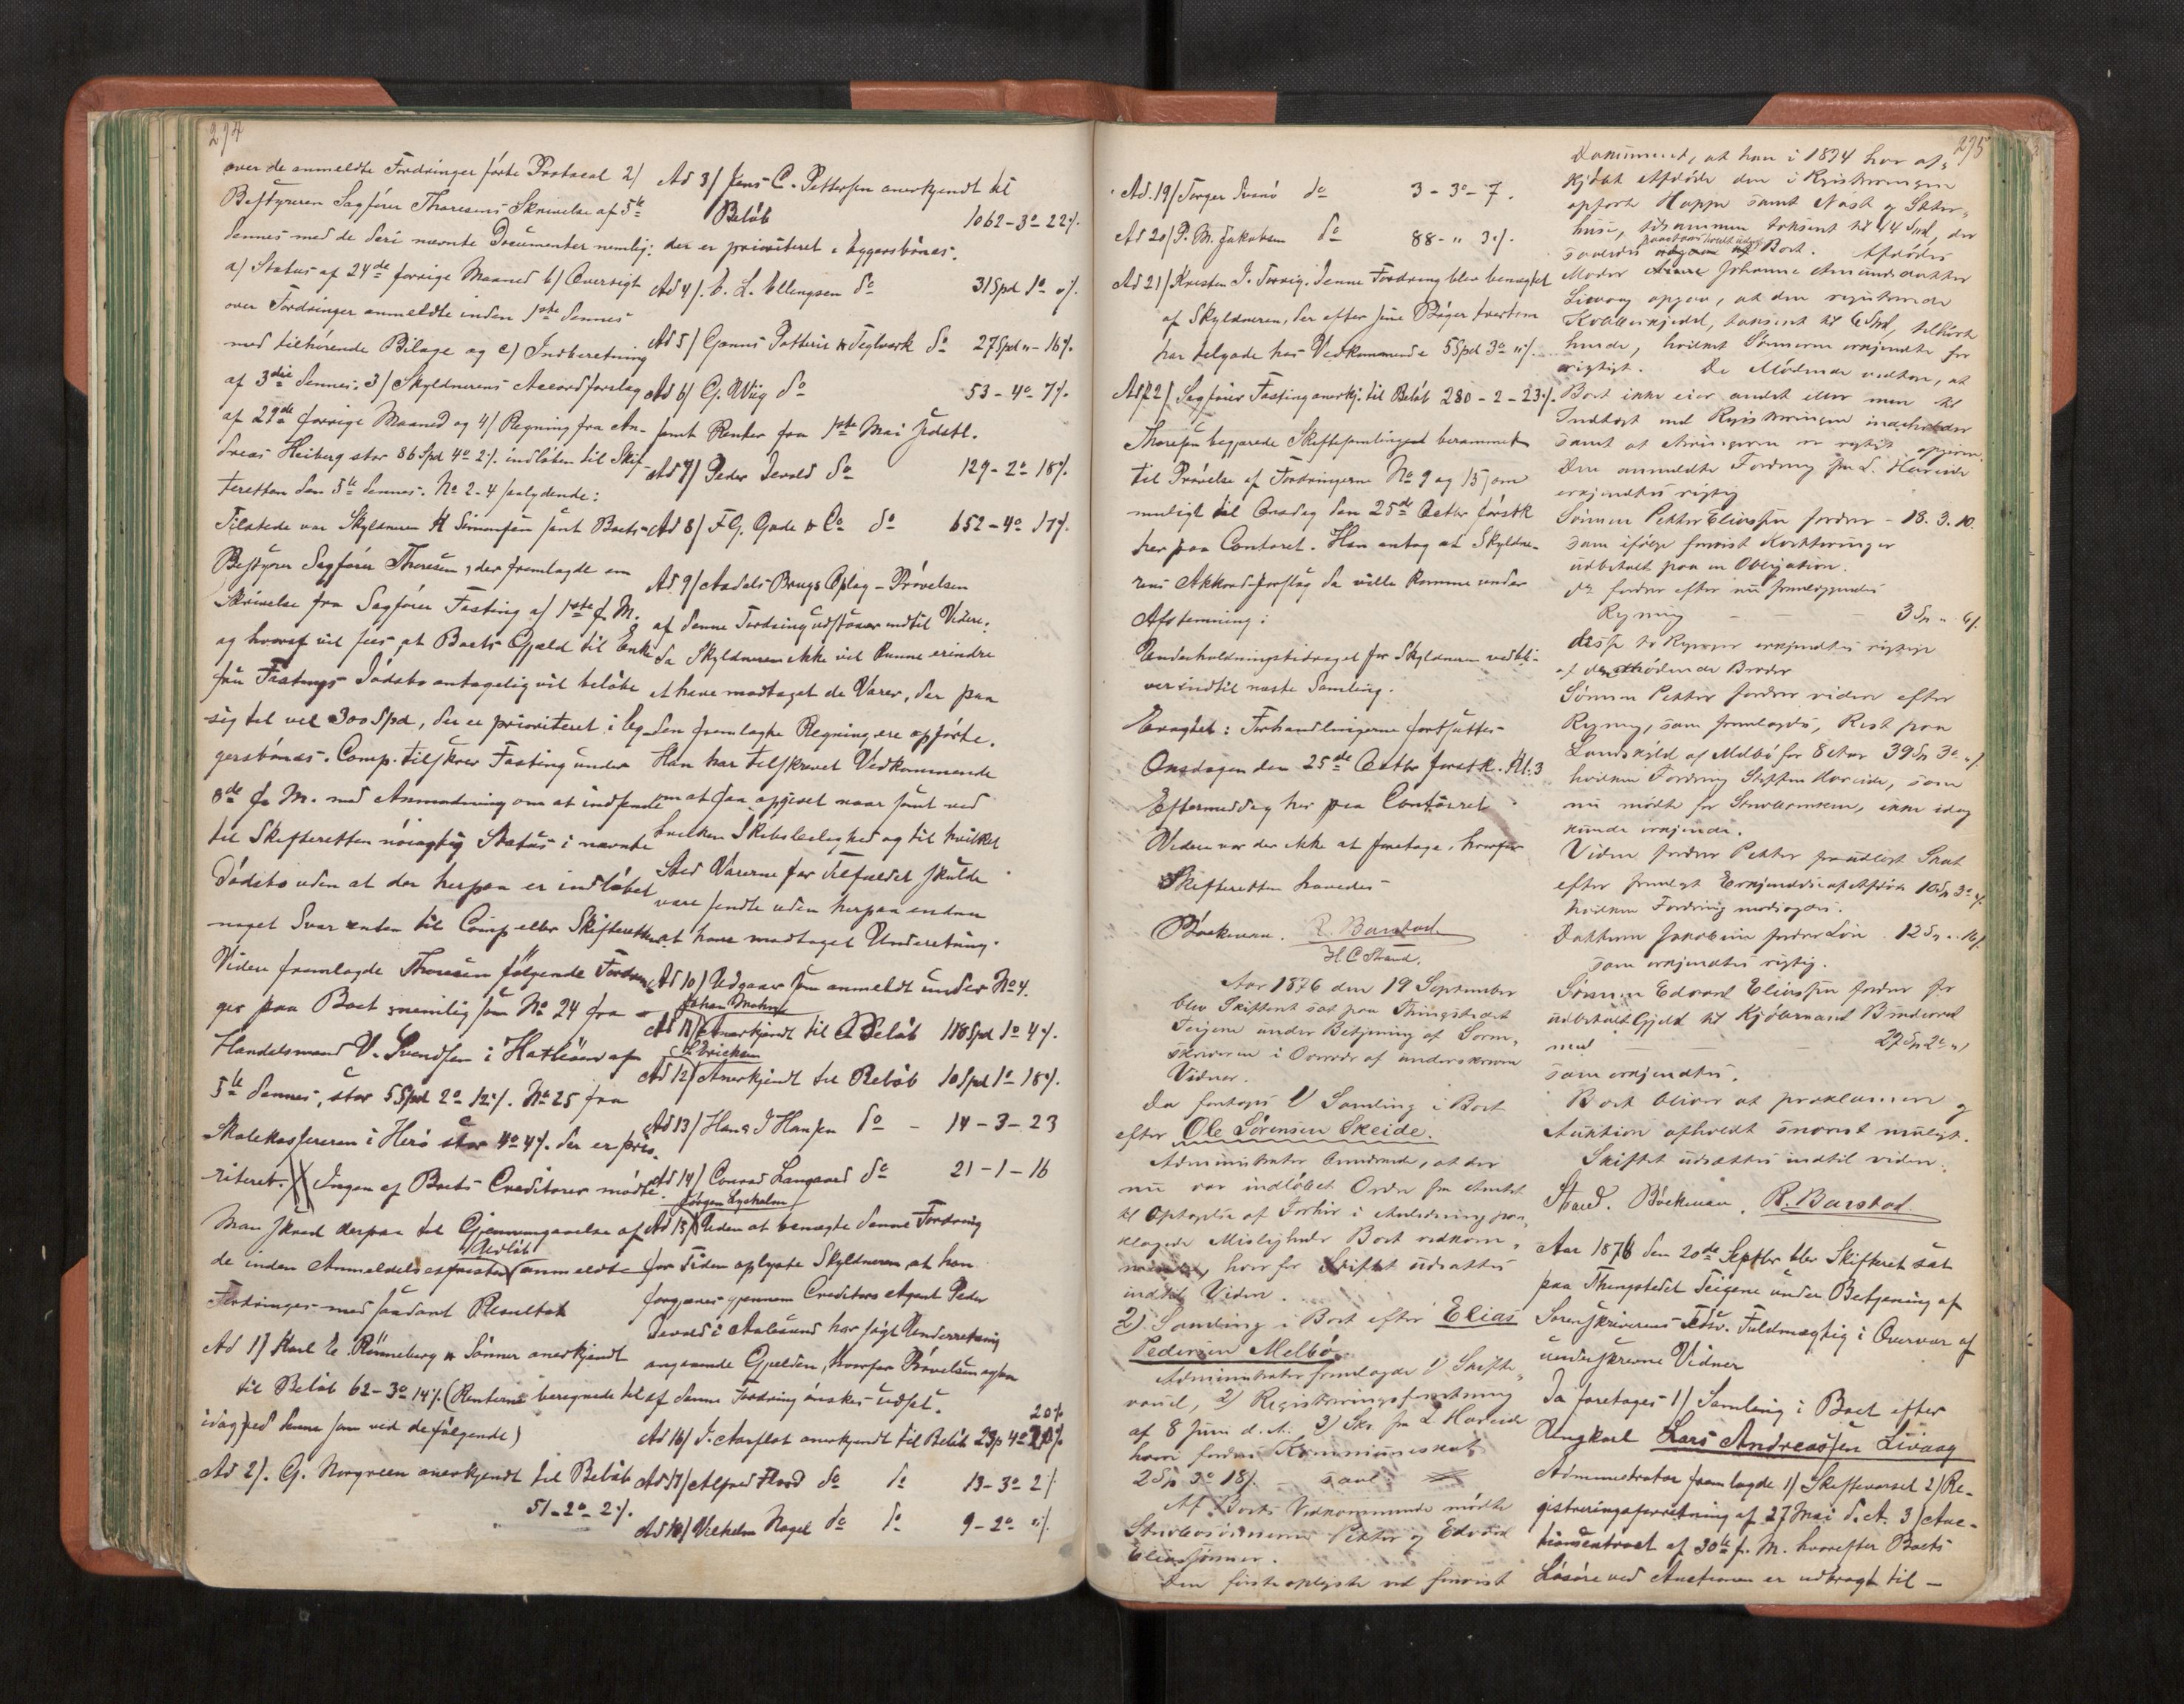 274
over de anmeldte Fordringer førte Protocol 2/
Bestyreren Sagfører Thoresens Skrivelse af 5te
dennes med de deri nævnte Documenter nemlig:
a/ Status af 24de forrige Maaned b/ Oversigt
over Fordringer anmeldte inden 1ste dennes
med tilhørende Bilage og c/ Indberetning
af 3die dennes. 3/ Skyldnerens Accordforslag
af 29de forrige Maaned og 4/ Regning fra An-
dreas Heiberg stor 86 Spd 4o 2/. indløben til Skif-
teretten den 5te dennes. No 2-4 saalydende:
Tilstede var Skyldneren H Simonsen samt Boets
Bestyrer Sagfører Thoresen, der fremlagde en
Skrivelse fra Sagfører Fasting af 1ste d. M.
og hvoraf vil sees, at Boets Gjæld til Enke
fru Fastings Dødsbo antagelig vil beløbe
sig til vel 300 Spd, der er prioriteret i Byg-
gersbónæs. Comp. tilskrev Fasting under
8de d. M. med Anmodning om at indsende
til Skifteretten nøiagtig Status i nævnte
Dødsbo uden at der herpaa er indløbet
noget Svar enten til Comp. eller Skifteretten.
Videre fremlagde Thoresen følgende Fordrin-
ger paa Boet, nemlig som No 24 fra
Handelsmand V. Svendsen i Hatløen af
5te dennes, stor 5 Spd 2o 12/. No 25 fra
Skolekassereren i Herø stor 4o 4/. der er prio-
riteret. Ingen af Boets Creditorer mødte.
Man skred derpaa til Gjennemgaaelse af
de inden Anmeldelsesfristens Udløb anmeldte
Fordringer med saadant Resultat
Ad 1/ Karl E. Rønneberg & Sønner anerkjendt
til Beløb 62-3o 14/. (Renterne beregnede til
idag ved denne som ved de følgende)
Ad 2/. G. Norgreen anerkjendt til Beløb
51-2o 2/.
Ad 3/ Jens C. Pettersen anerkjendt til
Beløb 1062-3o 22/.
der er prioriteret i Byggersbónæs.
Ad 4/. E. L. Ellingsen do 31 Spd 1o 0/.
Ad 5/ Gjønnes Potteri & Teglværk do 27 Spd " - 16/.
Ad 6/ G. Wiig do 53-4o 7/.
samt Renter fra 1ste Mai sidstl.
Ad 7/ Peder Devold do 129-2o 18/.
Ad 8/ F. G. Gade & Co do 652-4o 17/.
Ad 9/ Aadals Brugs Oplag - Prøvelsen
af denne Fordring udstaaer indtil Videre,
da Skyldneren ikke vil kunne erindre
at have modtaget de Varer, der paa
den fremlagte Regning ere opførte.
Han har tilskrevet Vedkommende
om at faa opgivet naar samt ved
hvilken Skibsleilighed og til hvilket
Sted Varerne for Tilfældet skulde
være sendte uden herpaa endnu
at have modtaget Underetning.
Ad 10/ Udgaar som anmeldt under No 4.
Ad 11/ Johan Mohn Anerkjendt til Beløb 118 Spd 1o 4/.
Ad 12/ Anerkjendt til Beløb 10 Spd 1o 18/.
Ad 13/ Hans J Hansen do - 14-3-23
Ad 14/ Conrad Langaard do 21-1-16
Ad 15/ Jørgen Lysholm Uden at benægte denne Fordring
for Tiden oplyste Skyldneren, at han
forgjæves gjennem Creditors Agent Peder
Devold i Aalesund har søgt Underretning
angaaende Gjælden, hvorfor Prøvelsen ogsaa
af denne Fordring ønskes udsat.
Ad 16/ J. Aarflot anerkjendt til Beløb 29 Sp 4o 20/.
Ad 17/ Alfred Flood do do 13-3o 2/.
Ad 18/ Vilhelm Nagel do do 9-2o "/.
275
Ad. 19/ Torger Svanø do 3-3o-7.
Ad 20/ P. M. Jakobsen do 88-" 3/.
Ad 21/ Kristen J. Torvig. Denne Fordring blev benægtet
af Skyldneren, der efter sine Bøger tvertom
har tilgode hos Vedkommende 5 Spd 3o "/.
Ad 22/ Sagfører Fasting anerkj. til Beløb 280-2-23/.
Thoresen begjærede Skiftesamlingen berammet
til Prøvelse af Fordringerne No 9 og 15, om
muligt til Onsdag den 25de Octbr førstk
her paa Contoret. Han antog at Skyldne-
rens Akkordforslag da ville komme under
Afstemning.
Underholdningsbidraget for Skyldneren vedbli-
ver indtil næste Samling.
Eragtet: Forhandlingerne fortsættes
Onsdagen den 25de Octbr førstk. Kl. 3
Eftermiddag her paa Contoiret
Videre var der ikke at foretage, hvorfor
Skifteretten hævedes
Böckman. R. Barstad
H. C. Strand.
Aar 1876 den 19 September
blev Skifteret sat paa Thingstedet
Teigene under Betjening af Soren-
skriveren i Overvær af underskrevne
Vidner.
Da foretoges 1/ Samling i Boet
efter Ole Sørensen Skeide.
Administrator bemærkede, at der
nu var indløbet Ordre fra Amtet
til Optagelse af Forhør i Anledning paa-
klagede Misligheder Boet vedkom-
mende, hvorfor Skiftet udsættes
indtil Videre.
2) Samling i Boet efter Elias
Pedersen Melbø.
Administrator fremlagde 1/ Skifte-
varsel, 2/ Registreringsforretning
af 8 Juni d. A. 3/ Skr. fra L Hareide
hvori fordres Kommuneskat
2 Sp 3o 18/. saal.
Af Boets Vedkommende mødte
Sønnerne Petter og Edvard
Eliassønner.
Den første oplyste ved forevist
Dokument, at han i 1874 har af-
kjøbt Afdøde den i Registreringen
opførte Hoppe samt Nøst og
huse, tilsammen taxeret til 44 Spd, der
saaledes Boet. Afdødes
Moder Johanne Amundsdatter
Liavaag opgav, at den registrerede
taxeret til 6 Spd, tilhørte
hende, hvilket Sønnerne erkjendte for
rigtigt. De Mødende vedtog, at
Boet ikke eier andet eller mere til
Indtægt end Registreringen indeholder
samt at
Den anmeldte Fordring fra L. Hareide
erkjendtes rigtig
Sønnen Petter Eliassen fordrer - 18. 3. 10.
som ifølge forevist Kvitteringer
udbetalt paa en Obligation.
do fordrer efter nu fremlæggendes
Regning 3 Sp " 6/.
disse to Regninger erkjendtes rigtige
af den mødende Broder
Sønnen Petter fordrer videre efter
Regning, som fremlagdes, Rest paa
Landskyld af Melbø for 8 Aar 39 Sp 3o "/.
hvilken Fordring Steffen Hareide, som
nu mødte for Sterboenken, ikke idag
kunde erkjende.
Videre fordrer Petter for udlagt Skat
efter fremlagt Erkjendelse af Afdøde 10 Sp 3o "/.
hvilken Fordring modsagdes.
Datteren Jakobine fordrer Løn 12 Sp " 16/.
som erkjendtes rigtig.
Sønnen Edvard Eliassen fordrer for
udbetalt Gjeld til Kjøbmand
med 27 Sp 2o "/
som erkjendtes.
Boet bliver at proklamere og
Auktion afholdt snarest muligt.
Skiftet udsættes indtil videre.
Strand. Böckman. R. Barstad
Aar 1876 den 20de Septbr blev Skifteret sat
paa Thingstedet Teigene under Betjening af
Sorenskriverens Edsv. Fuldmægtig i Overvær af
underskrevne Vidner
Da foretages 1/ Samling i Boet efter
Ungkarl Lars Andreassen Liavaag
Administrator fremlagde 1/ Skiftevarsel 2/ Re-
gistreringsforretning af 27 Mai d. A. 3/ Auc-
tionsextract af 30te f. M. hvorefter Boets
Løsøre ved Auctionen er udbragt til -